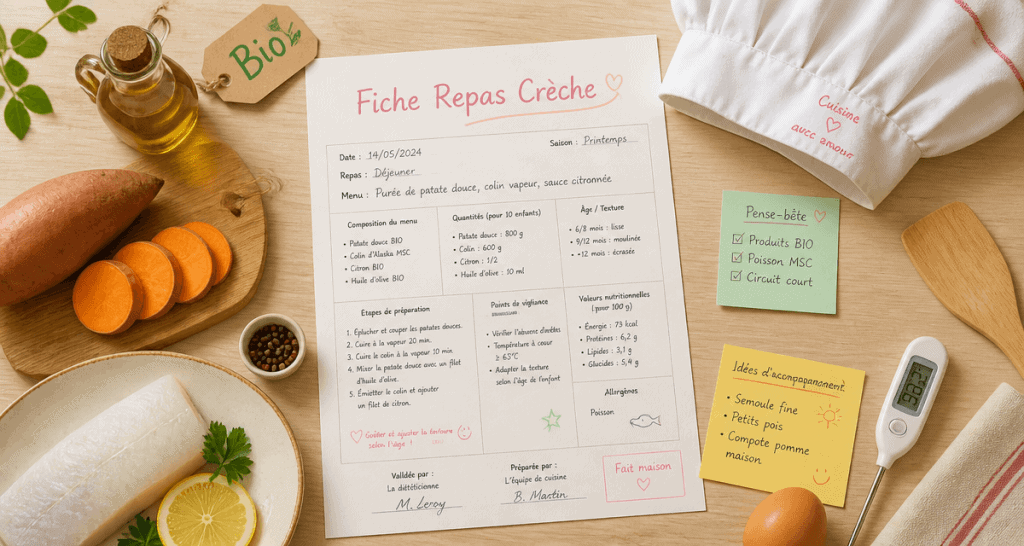 Bio
Fiche Repas Crèche
Date : 14/05/2024
Saison : Printemps
Repas : Déjeuner
Menu : Purée de patate douce, colin vapeur, sauce citronnée
Composition du menu
• Patate douce BIO
• Colin d'Alaska MSC
• Citron BIO
• Huile d'olive BIO
Quantités (pour 10 enfants)
• Patate douce : 800 g
• Colin : 600 g
• Citron : 1/2
• Huile d'olive : 10 ml
Âge / Texture
• 6/8 mois : lisse
• 9/12 mois : moulinée
• +12 mois : écrasée
Etapes de préparation
1. Éplucher et couper les patates douces.
2. Cuire à la vapeur 20 min.
3. Cuire le colin à la vapeur 10 min.
4. Mixer la patate douce avec un filet
d'huile d'olive.
5. Émietter le colin et ajouter
un filet de citron.
Goûter et ajuster la
selon l'âge !
Points de vigilance
• Vérifier l'absence
• Température à cœur
≥ 63°C
• Adapter la texture
selon l'âge de l'enfant
Valeurs nutritionnelles
(pour 100 g)
• Énergie : 73 kcal
• Protéines : 6,2 g
• Lipides : 3,1 g
• Glucides : 5,4 g
Allergènes
Poisson
Validée par :
La diététicienne
M. Leroy
Préparée par :
L'équipe de cuisine
B. Martin
Fait maison
Cuisine
avec amour
Pense-bête
☑ Produits BIO
☑ Poisson MSC
☑ Circuit court
Idées d'acompapanoment
• Semoule fine
• Petits pois
• Compote pomme
maison